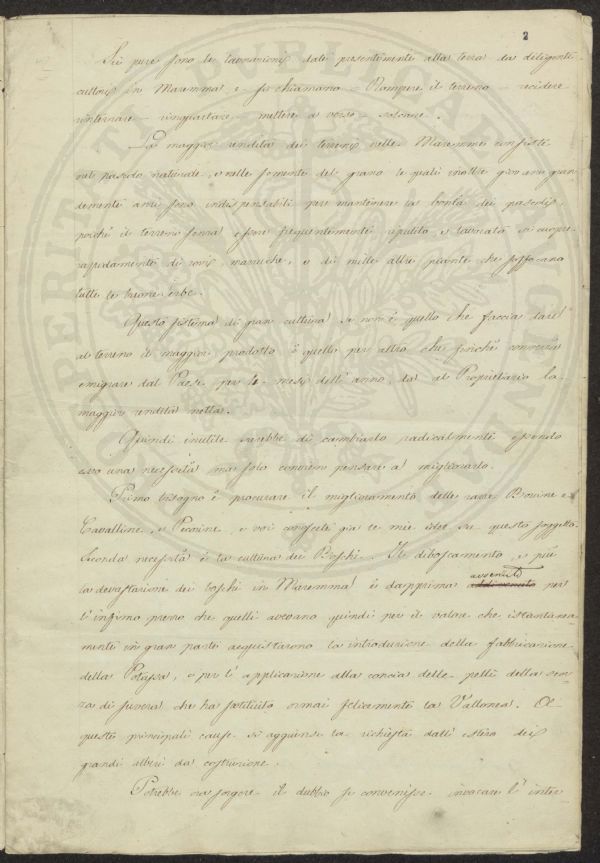 2
Sei pure sono le lavorazioni date presentemente alla terra da diligenti
cultori in Maremma e si chiamano – Rompere il terreno – recidere
rinterzare – rinquartare – mettere a verso – solcare.
La maggior rendita dei terreni nelle Maremme consiste
nel pascolo naturale, e nelle semente del grano le quali inoltre giovano gran
demente anzi sono indispensabili per mantenere la bontà dei pascoli,
poichè il terreno senza essere frequentemente ripulito, e lavorato si cuopre
rapidamente di rovi, marruche, e di mille altre piante che soffocano
tutte le buone erbe.
Questo sistema di gran cultura se non è quello che faccia dare
al terreno il maggior prodotto è quello per altro che finchè converrà
emigrare dal Paese per 4 mesi dell'anno, dà al Proprietario la
maggior rendita netta.
Quindi inutile sarebbe di cambiarlo radicalmente essendo
esso una necessità ma solo conviene pensare a migliorarlo.
Primo bisogno è procurare il miglioramento delle razze Bovine e
Cavalline, e Pecorine, e voi conoscete già le mie idee su questo soggetto.
Seconda necessità è la cultura dei Boschi. Il diboscamento, e più
la devastazione dei boschi in Maremma è dapprima avvenuto per
l'infimo prezzo che quelli avevano quindi per il valore che istantanea
mente in gran parte acquistarono la introduzione della fabbricazione
della Potassa, e per l'applicazione alla concia delle pelli della scor
za di suvera che ha sostituito ormai felicemente la Vallonea. A
queste principali cause si aggiunse la richiesta dall'estero dei
grandi alberi da costruzione.
Potrebbe ora sorgere il dubbio se convenisse invocare l'inter